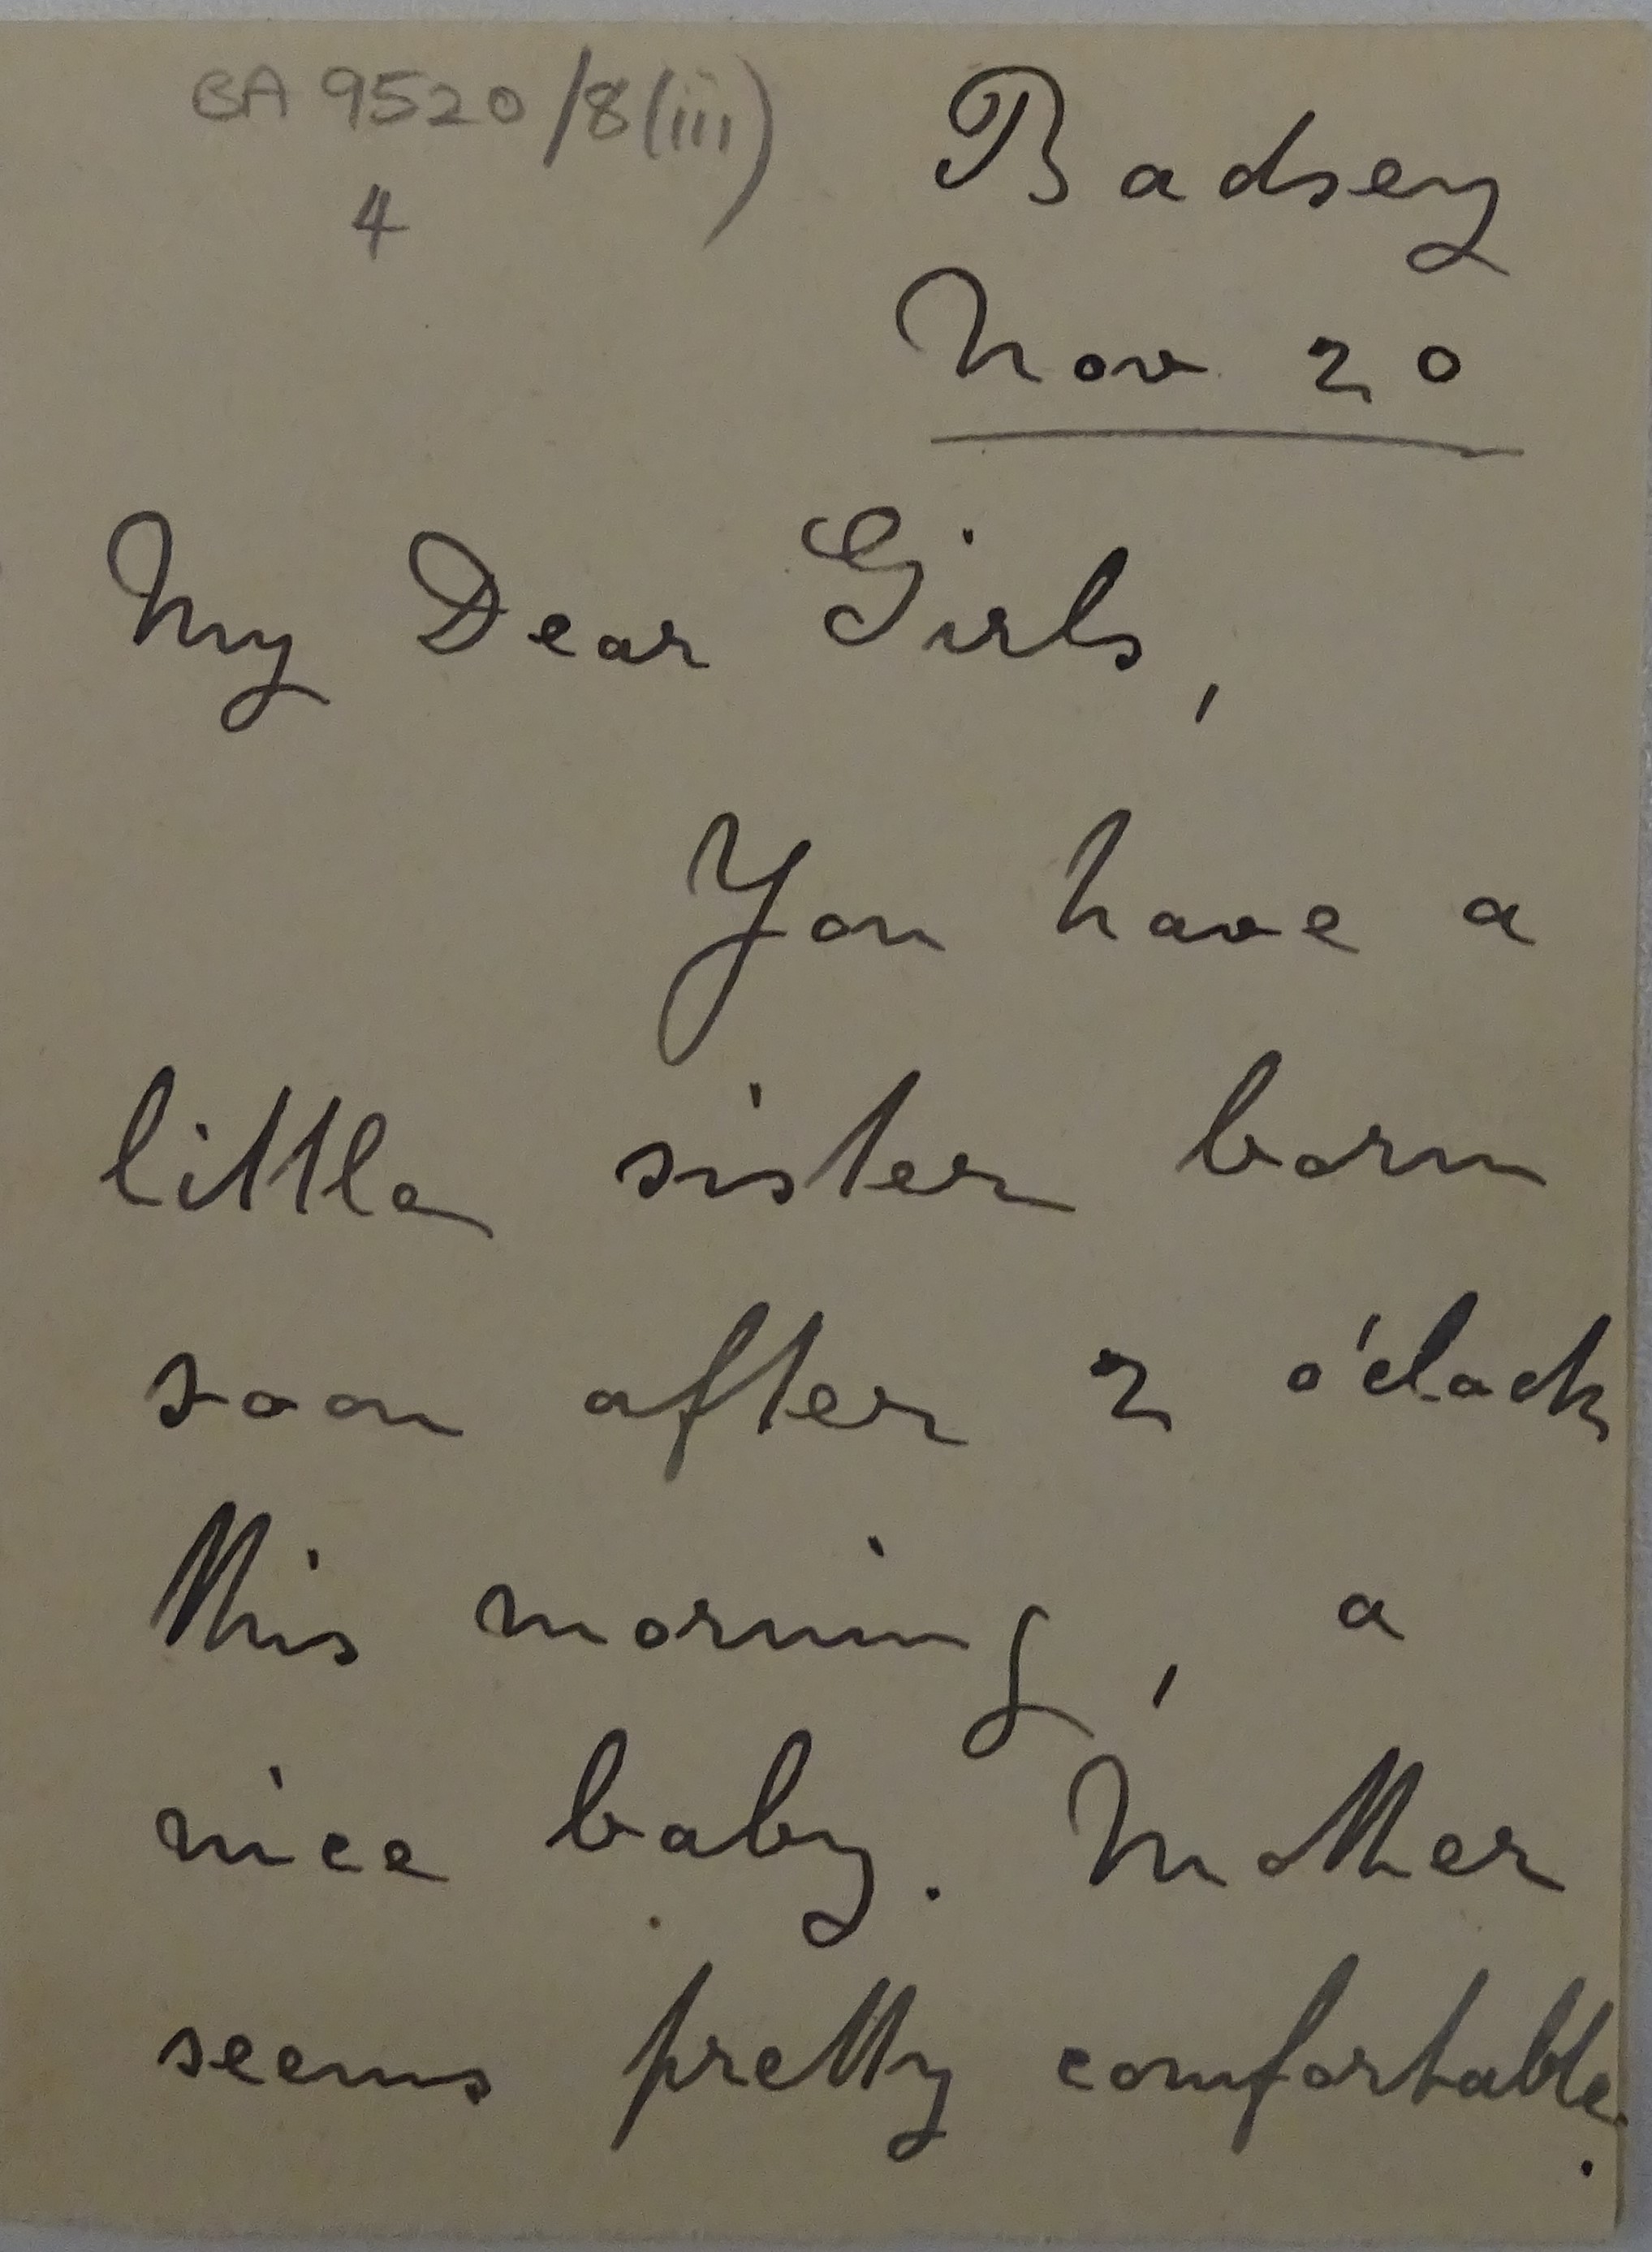 BA 9520/8(iii)
4
Badsey
Nov 20
My Dear Girls,
You have a
little sister born
soon after 2 o'clock
this morning, a
nice baby. Mother
seems pretty comfortable.